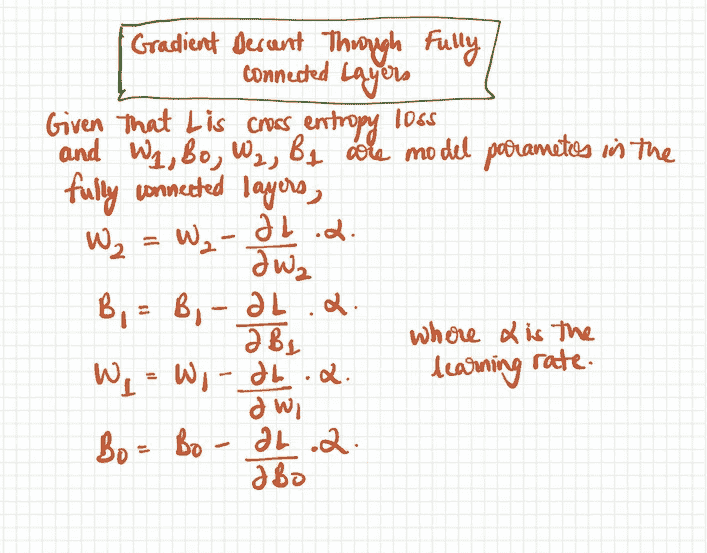 Gradient Descent Through Fully
Connected Layers
Given that L is cross entropy loss
and W₁, B₀, W₂, B₁ are model parameters in the
fully connected layers,
W₂ = W₂ - ∂L/∂W₂ . α.
B₁ = B₁ - ∂L/∂B₁ . α.
where α is the
learning rate.
W₁ = W₁ - ∂L/∂W₁ . α.
B₀ = B₀ - ∂L/∂B₀ . α.